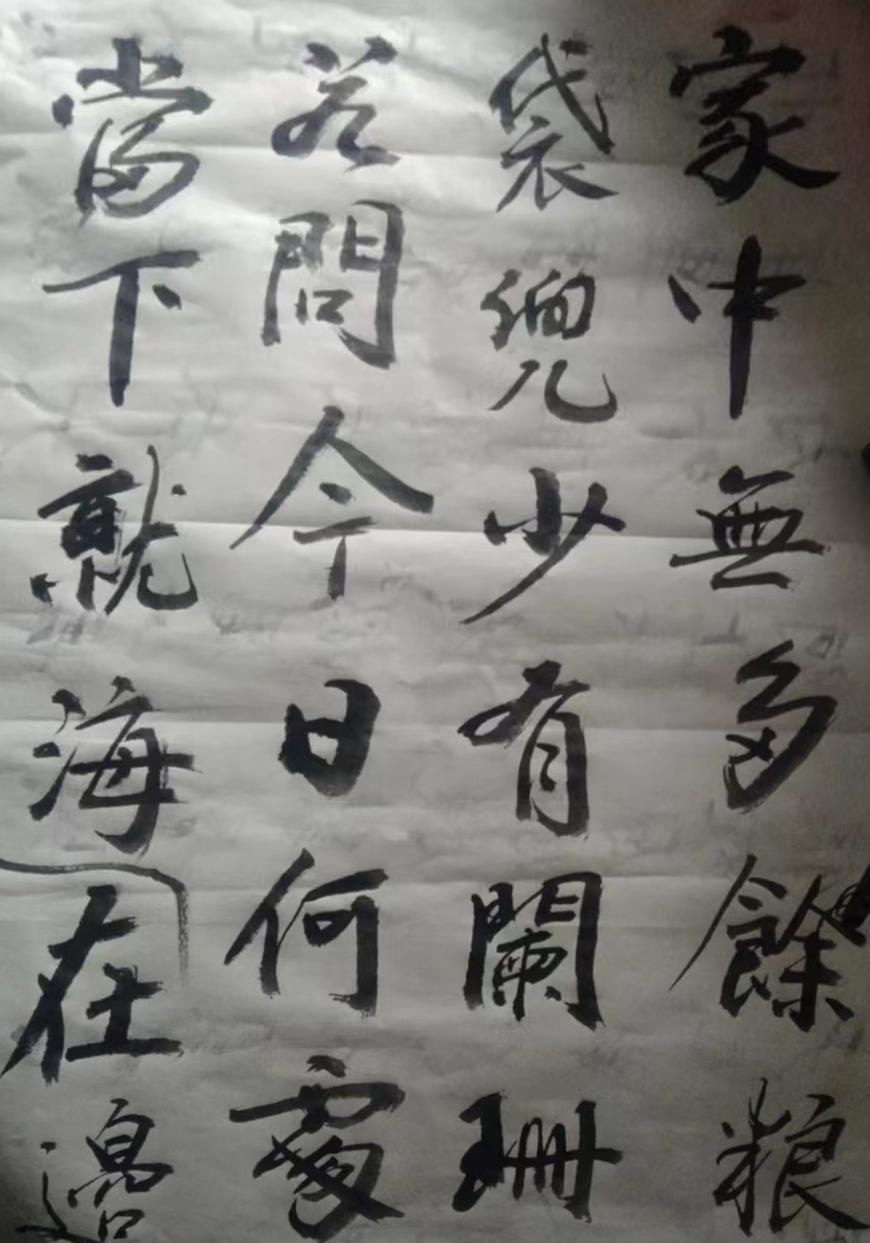 家中無多餘粮
袋兜少有闌珊
若問今日何處
當下就海在邊